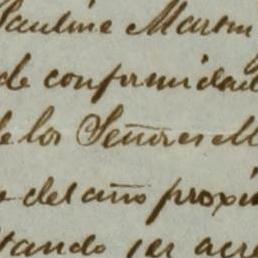 Pauline Martin
de conformidad
de los Señores M
e del año proxi
tando ser acre